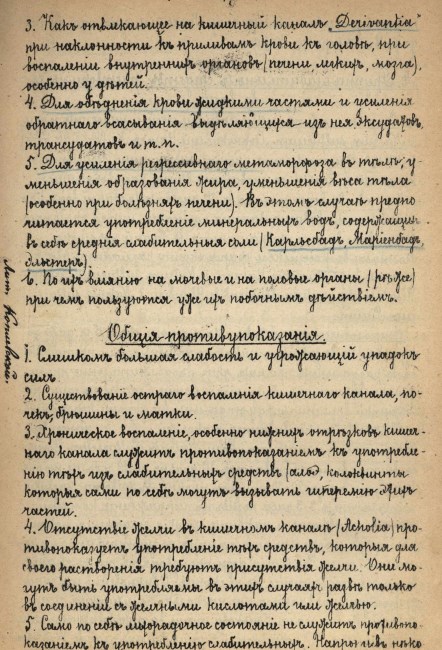 3. Какъ отвлекающее на кишечный каналъ „Derivantia“
при наклонности къ приливамъ крови къ головѣ, при
воспаленіи внутреннихъ органовъ (печени, легкихъ, мозга),
особенно у дѣтей.
4. Для объѣдненія крови жидкими частями и усиленія
обратнаго всасыванія выдѣляющихся изъ нея эксудатовъ,
трансудатовъ и т.п.
5. Для усиленія регрессивнаго метаморфоза въ тѣлѣ, у-
меньшенія образованія жира, уменьшенія вѣса тѣла
(особенно при болѣзняхъ печени). Въ этомъ случаѣ предпо
читается употребленіе минеральныхъ водъ, содержащихъ
въ себѣ среднія слабительныя соли (Карльсбадъ, Маріенбадъ,
Эльстеръ)
6. По ихъ вліянію на мочевые и на половые органы (рѣже)
при чемъ пользуются уже ихъ побочнымъ дѣйствіемъ.
Общія противупоказанія.
1. Слишкомъ большая слабость и угрожающій упадокъ
силъ
2. Существованіе остраго воспаленія кишечнаго канала, по-
чекъ, брюшины и матки.
3. Хроническое воспаленіе, особенно нижнихъ отрѣзковъ кишеч-
наго канала служитъ противопоказаніемъ къ употребле-
нію тѣхъ изъ слабительныхъ средствъ (алоэ, колоквинты)
которыя сами по себѣ могутъ вызывать гиперемію этихъ
частей.
4. Отсутствіе желчи въ кишечномъ каналѣ (Acholia) про-
тивопоказуетъ употребленіе тѣхъ средствъ, которыя для
своего растворенія требуютъ присутствія желчи. Они мо-
гутъ быть употребляемы въ этихъ случаяхъ развѣ только
въ соединеніи съ желчными кислотами или желчью.
5. Само по себѣ лихорадочное состояніе не служитъ противопо-
казаніемъ къ употребленію слабительныхъ. Напротивъ, нѣко
Лит.